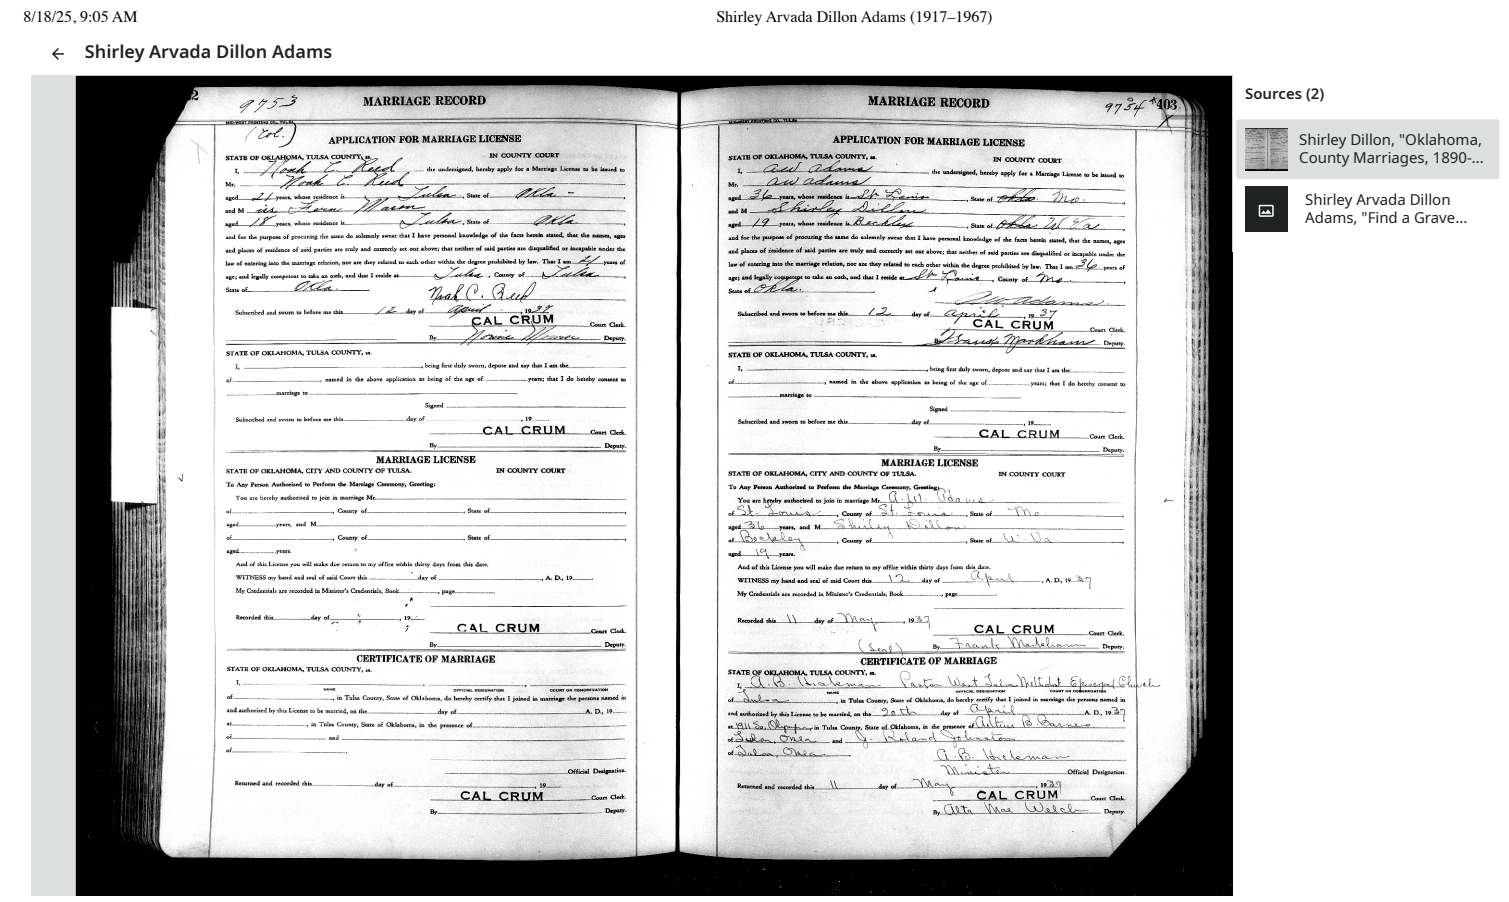 8/18/25, 9:05 AM
Shirley Arvada Dillon Adams (1917–1967)
← Shirley Arvada Dillon Adams
Sources (2)
Shirley Dillon, "Oklahoma,
County Marriages, 1890-...
Shirley Arvada Dillon
Adams, "Find a Grave...
2
9753
MARRIAGE RECORD
MID-WEST PRINTING CO., TULSA
(Col.)
APPLICATION FOR MARRIAGE LICENSE
STATE OF OKLAHOMA, TULSA COUNTY, ss. IN COUNTY COURT
I, Noah C. Reed the undersigned, hereby apply for a Marriage License to be issued to
Mr. Noah C. Reed
aged 21 years, whose residence is Tulsa, State of Okla -
and M iss Fern Mason
aged 18 years, whose residence is Tulsa, State of Okla
and for the purpose of procuring the same do solemnly swear that I have personal knowledge of the facts herein stated, that the names, ages
and places of residence of said parties are truly and correctly set out above; that neither of said parties are disqualified or incapable under the
law of entering into the marriage relation, nor are they related to each other within the degree prohibited by law. That I am 21 years of
age; and legally competent to take an oath, and that I reside at Tulsa, County of Tulsa
State of Okla. Noah C. Reed
Subscribed and sworn to before me this 12 day of April, 1937
CAL CRUM Court Clerk.
By Deputy.
STATE OF OKLAHOMA, TULSA COUNTY, ss.
I, , being first duly sworn, depose and say that I am the
of , named in the above application as being of the age of years; that I do hereby consent to
marriage to
Signed
Subscribed and sworn to before me this day of , 19
CAL CRUM Court Clerk.
By Deputy.
MARRIAGE LICENSE
STATE OF OKLAHOMA, CITY AND COUNTY OF TULSA. IN COUNTY COURT
To Any Person Authorized to Perform the Marriage Ceremony, Greeting:
You are hereby authorized to join in marriage Mr.
of , County of , State of
aged years, and M
of , County of , State of
aged years.
And of this License you will make due return to my office within thirty days from this date.
WITNESS my hand and seal of said Court this day of , A. D., 19
My Credentials are recorded in Minister's Credentials, Book , page
Recorded this day of , 19
CAL CRUM Court Clerk.
By Deputy.
CERTIFICATE OF MARRIAGE
STATE OF OKLAHOMA, TULSA COUNTY, ss.
I,
NAME OFFICIAL DESIGNATION COURT OR CONGREGATION
of , in Tulsa County, State of Oklahoma, do hereby certify that I joined in marriage the persons named in
and authorized by this License to be married, on the day of A. D., 19
at , in Tulsa County, State of Oklahoma, in the presence of
of and
of
Official Designation.
Returned and recorded this day of , 19
CAL CRUM Court Clerk.
By Deputy.
MARRIAGE RECORD
9754 403
MID-WEST PRINTING CO., TULSA
APPLICATION FOR MARRIAGE LICENSE
STATE OF OKLAHOMA, TULSA COUNTY, ss. IN COUNTY COURT
I, A W Adams the undersigned, hereby apply for a Marriage License to be issued to
Mr. A W Adams
aged 36 years, whose residence is St Louis, State of Okla. Mo.
and M Shirley Dillon
aged 19 years, whose residence is Beckley, State of Okla W Va
and for the purpose of procuring the same do solemnly swear that I have personal knowledge of the facts herein stated, that the names, ages
and places of residence of said parties are truly and correctly set out above; that neither of said parties are disqualified or incapable under the
law of entering into the marriage relation, nor are they related to each other within the degree prohibited by law. That I am 36 years of
age; and legally competent to take an oath, and that I reside at St Louis, County of Mo.
State of Okla. A.W. Adams
Subscribed and sworn to before me this 12 day of April, 1937
CAL CRUM Court Clerk.
By Frank Markham Deputy.
STATE OF OKLAHOMA, TULSA COUNTY, ss.
I, , being first duly sworn, depose and say that I am the
of , named in the above application as being of the age of years; that I do hereby consent to
marriage to
Signed
Subscribed and sworn to before me this day of , 19
CAL CRUM Court Clerk.
By Deputy.
MARRIAGE LICENSE
STATE OF OKLAHOMA, CITY AND COUNTY OF TULSA. IN COUNTY COURT
To Any Person Authorized to Perform the Marriage Ceremony, Greeting:
You are hereby authorized to join in marriage Mr. A.W. Adams
of St. Louis, County of St. Louis, State of Mo.
aged 36 years, and M Shirley Dillon
of Beckley, County of , State of W. Va
aged 19 years.
And of this License you will make due return to my office within thirty days from this date.
WITNESS my hand and seal of said Court this 12 day of April, A. D., 1937
My Credentials are recorded in Minister's Credentials, Book , page
Recorded this 11 day of May, 1937
CAL CRUM Court Clerk.
(Seal) By Frank Markham Deputy.
CERTIFICATE OF MARRIAGE
STATE OF OKLAHOMA, TULSA COUNTY, ss.
I, A.B. Pastor West Tulsa Methodist Episcopal Church
NAME OFFICIAL DESIGNATION COURT OR CONGREGATION
of Tulsa, in Tulsa County, State of Oklahoma, do hereby certify that I joined in marriage the persons named in
and authorized by this License to be married, on the 20th day of April A. D., 1937
at 1911 So. Olympia, in Tulsa County, State of Oklahoma, in the presence of Arthur B Barnes
of Tulsa, Okla and J. Roland Johnston
of Tulsa, Okla
A.B.
Minister Official Designation.
Returned and recorded this 11 day of May, 1937
CAL CRUM Court Clerk.
By Alta Mae Welch Deputy.